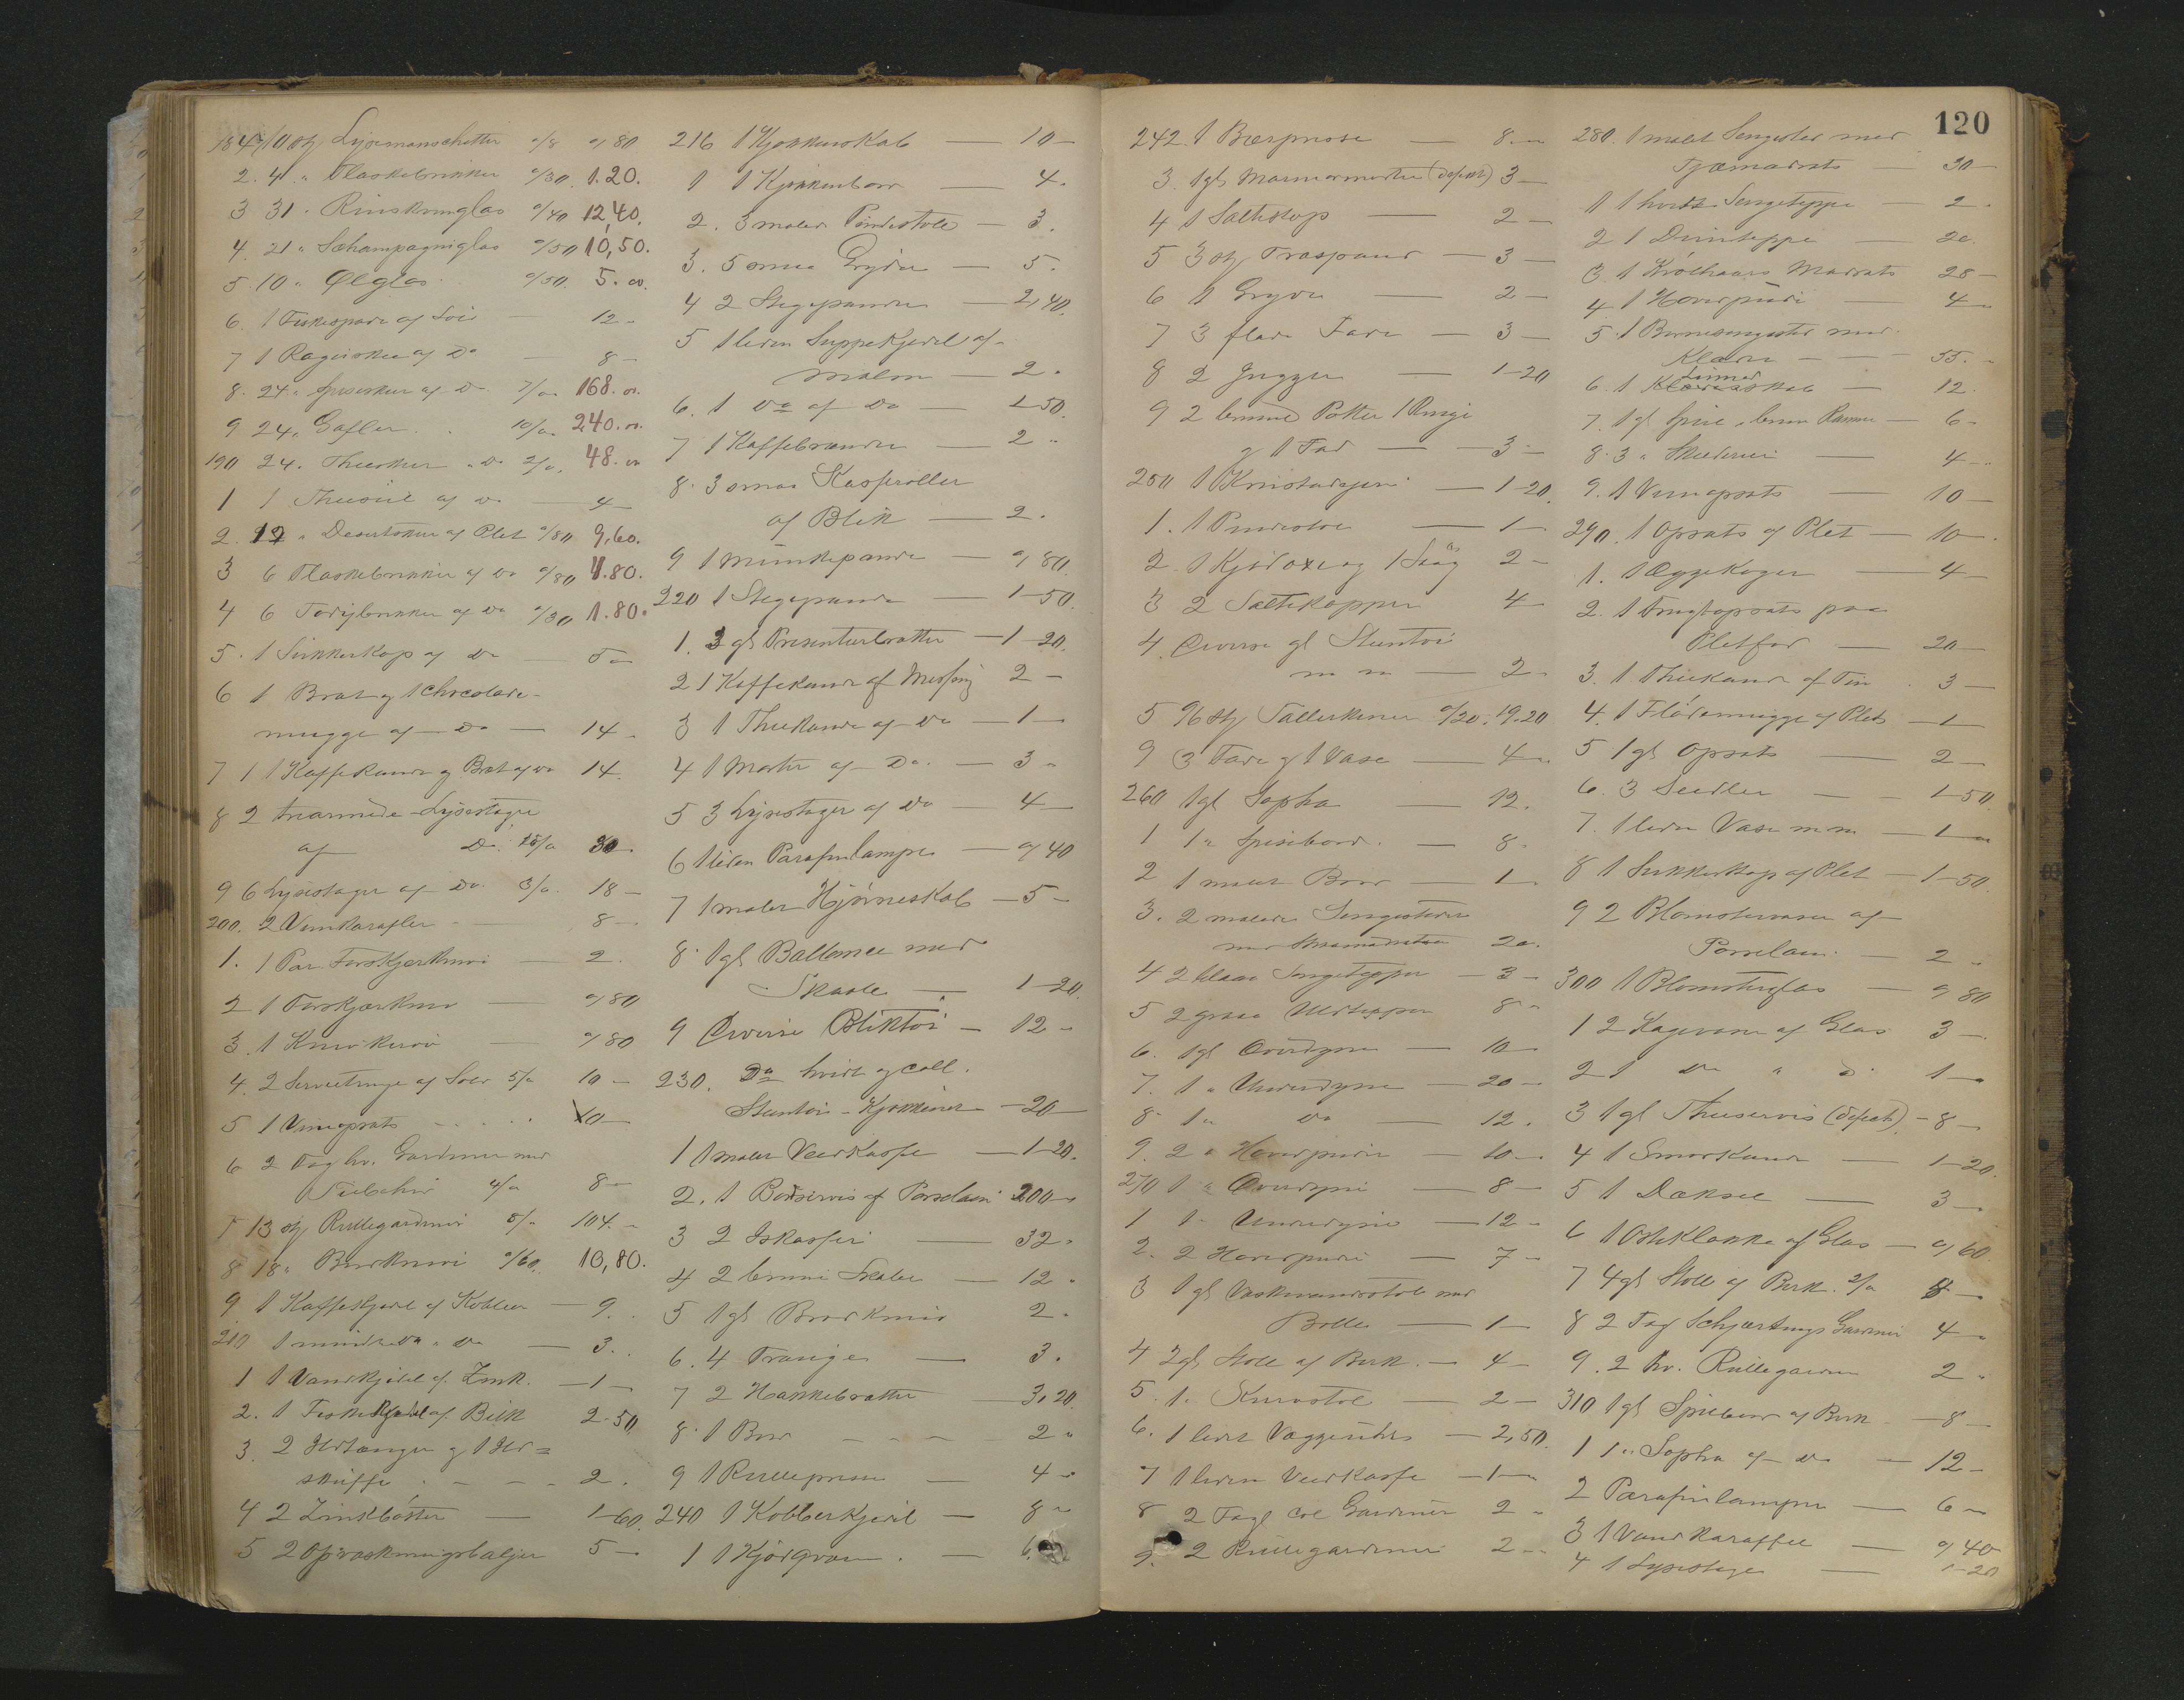 184/10 stk Lysemanschetter "/8 "/80
2. 4 " Flaskebrikker "/30. 1.20.
3 31 " Rinskvinglas "/40 12,40.
4. 21 " Schampagniglas "/50 10,50.
5. 10 " Ølglas "/50. 5. 00.
6. 1 Fiskespade af Sølv — 12 "
7 1 Raguskee af Do — 8 —
8. 24 " Spiseskeer af Do 7/" 168. 00.
9 24 " Gafler " 10/" 240. 00.
190 24. Theeskeer " Do 2/" 48. 00
1 1 Theesiil af Do — 4 —
2. 12 " Desertskeer af Plet "/80 9,60.
3 6 Flaskebrikker af Do "/80 4.80.
4 6 Todybrikker af Do "/30 1.80.
5. 1 Sukkerkop af Do — 5 "
6 1 Bræt og 1 Chocolade-
mugge af Do — 14 "
7 1 1 Kaffekande og Bræt af Do 14.
8 2 trearmede Lysestager
af Do. 15/" 30.
9 6 Lysestager af Do. 3/" 18 —
200. 2 Vinkarafler — 8 —
1. 1 Par Forskjærkniv — 2.
2 1 Forskjærkniv — "/80
3. 1 Knivkurv — "/80
4. 2 Servietringe af Sølv 5/" 10 —
5 1 Vinopsats 10 —
6 2 Fag hv. Gardiner med
Tilbehør 4/" 8 —
7 13 stk Rullegardiner 8/" 104. —
8 18 " Bordknive "/60. 10,80.
9. 1 Kaffekjedel af Kobber — 9.
210 1 mindre Do " Do — 3.
1 1 Vandkjedel af Zink. — 1 —
2. 1 Fiskekjedel af Blik 2-50
3. 2 Ildtænger og 1 Ild=
skuffe — 2.
4 2 Zinkbøtter — 1-60.
5 2 Opvaskningsbaljer 5 —
216 1 Kjøkkenskab — 10 —
1 1 Kjøkkenbord — 4.
2. 3 malede Pindestole — 3.
3. 5 smaa Gryder — 5.
4 2 Stegepander — 2,40.
5 1 liden Suppekjedel af
Malm — 2.
6. 1 Do af Do — 1-50.
7 1 Kaffebrænder — 2 "
8. 3 smaa Kasseroller
af Blik — 2.
9 1 Munkepande — "/80.
220 1 Stegepande — 1-50.
1. 3 gl Presenterbrætter — 1-20.
2 1 Kaffekande af Messing 2 —
3 1 Theekande af Do — 1 —
4 1 Morter af Do. — 3 "
5 3 Lysestager af Do — 4 —
6 1 liden Parafinlampe — "/40
7 1 malet Hjørneskab — 5 —
8. 1 gl Ballance med
Skaale — 1-20.
9 Diverse Bliktøi — 12 "
230. Do hvidt og coll.
Stentøi - Kjøkkenet — 20 —
1 1 malet Vedkasse — 1-20.
2. 1 Bordservis af Porselain 200 —
3 2 Iskasser — 32 "
4 2 brune Skabe — 12 "
5 1 gl Brødkniv 2.
6. 4 — 3.
7 2 Hakkebrætter — 3.20
8. 1 Bord — 2 "
9 1 Rullepresse — 4 "
240 1 Kobberkjedel — 8 "
1 1 Kjødqværn. — 6.
120
242. 1 Bærpresse — 8 "
3. 1 gl Marmormorter (defect) 3 —
4 1 Saltstop — 2 —
5 3 stk Traspand — 3 —
6 1 Gryde — 2 —
7 3 flade Fade — 3 —
8 2 Jugger — 1-20
9 2 brune Potter 1 Ringe
og 1 Fad — 3 —
250 1 — 1-20.
1. 1 Pindestol — 1 —
2. 1 Kjødøxe og 1 Sag 2 —
3 2 Saltkopper 4 —
4. Diverse gl Stentøi
m m — 2 "
5 96 stk Tallerkener "/20. 19.20
9 3 Fade og 1 Vase — 4 "
260 1 gl Sopha — 12.
1 1 " Spisebord. — 8.
2 1 malet Bord — 1 "
3. 2 malede Sengesteder
med 20.
4 2 blaa Sengetepper — 3 —
5 2 graa Uldtepper 8 "
6. 1 gl Overdyne — 10 —
7. 1 " Underdyne — 20 —
8 1 " Do — 12.
9. 2 " Hovedpuder — 10 —
270 1 " Overdyne — 8 —
1 1 " Underdyne — 12 "
2. 2 Hovedpuder — 7 —
3 1 gl Vaskevandsstol med
Bolle — 1 —
4 2 gl Stole af Birk. — 4 —
5. 1 " Kurvstol — 2 —
6. 1 lidet Væggeuhr — 2,50.
7 1 liden Vedkasse — 1 —
8 2 Fag Col Gardiner 2 "
9. 2 Rullegardiner 2 "
280. 1 malet Sengested med
Fjærmadrats — 30 —
1 1 hvidt Sengeteppe — 2.
2 1 Duunteppe — 20.
3. 1 Krølhaars Madrats 28 —
4 1 Hovedpude — 4 "
5. 1 Børnesengested med
Klæder — 55. "
6. 1 Linnedskab — 12.
7. 1 gl Speil i brun Ramme — 6 "
8. 3 " Skilderier — 4 "
9. 1 Vinopsats — 10 —
290. 1 Opsats af Plet — 10 —
1. 1 Æggekoger — 4 —
2. 1 Frugtopsats paa
Pletfod — 20 —
3. 1 Theekande af Tin. 3 —
4. 1 Flødemugge af Plet — 1 —
5 1 gl Opsats — 2 —
6. 3 Seidler — 1-50.
7. 1 liden Vase m m — 1 —
8 1 Sukkerkop af Plet — 1-50.
9 2 Blomstervaser af
Porselain. — 2 "
300 1 Blomsterglas — "/80
1 2 Kagevaser af Glas 3 —
2 1 Do " Do 1 —
3 1 gl Theeservis (defect) — 8 —
4 1 Smørkande — 1-20.
5 1 Dæksel — 3 —
6 1 Osteklokke af Glas — "/60.
7 4 gl Stole af Birk. 2/" 8 —
8 2 Fag Schjærtings Gardiner 4 "
9. 2 hv. Rullegardiner 2 "
310 1 gl Spisebord af Birk — 8 —
1 1 " Sopha af Do — 12 —
2 Parafinlamper — 6 "
3 1 Vandkaraffel — "/40
4 1 Lysestage — 1-20